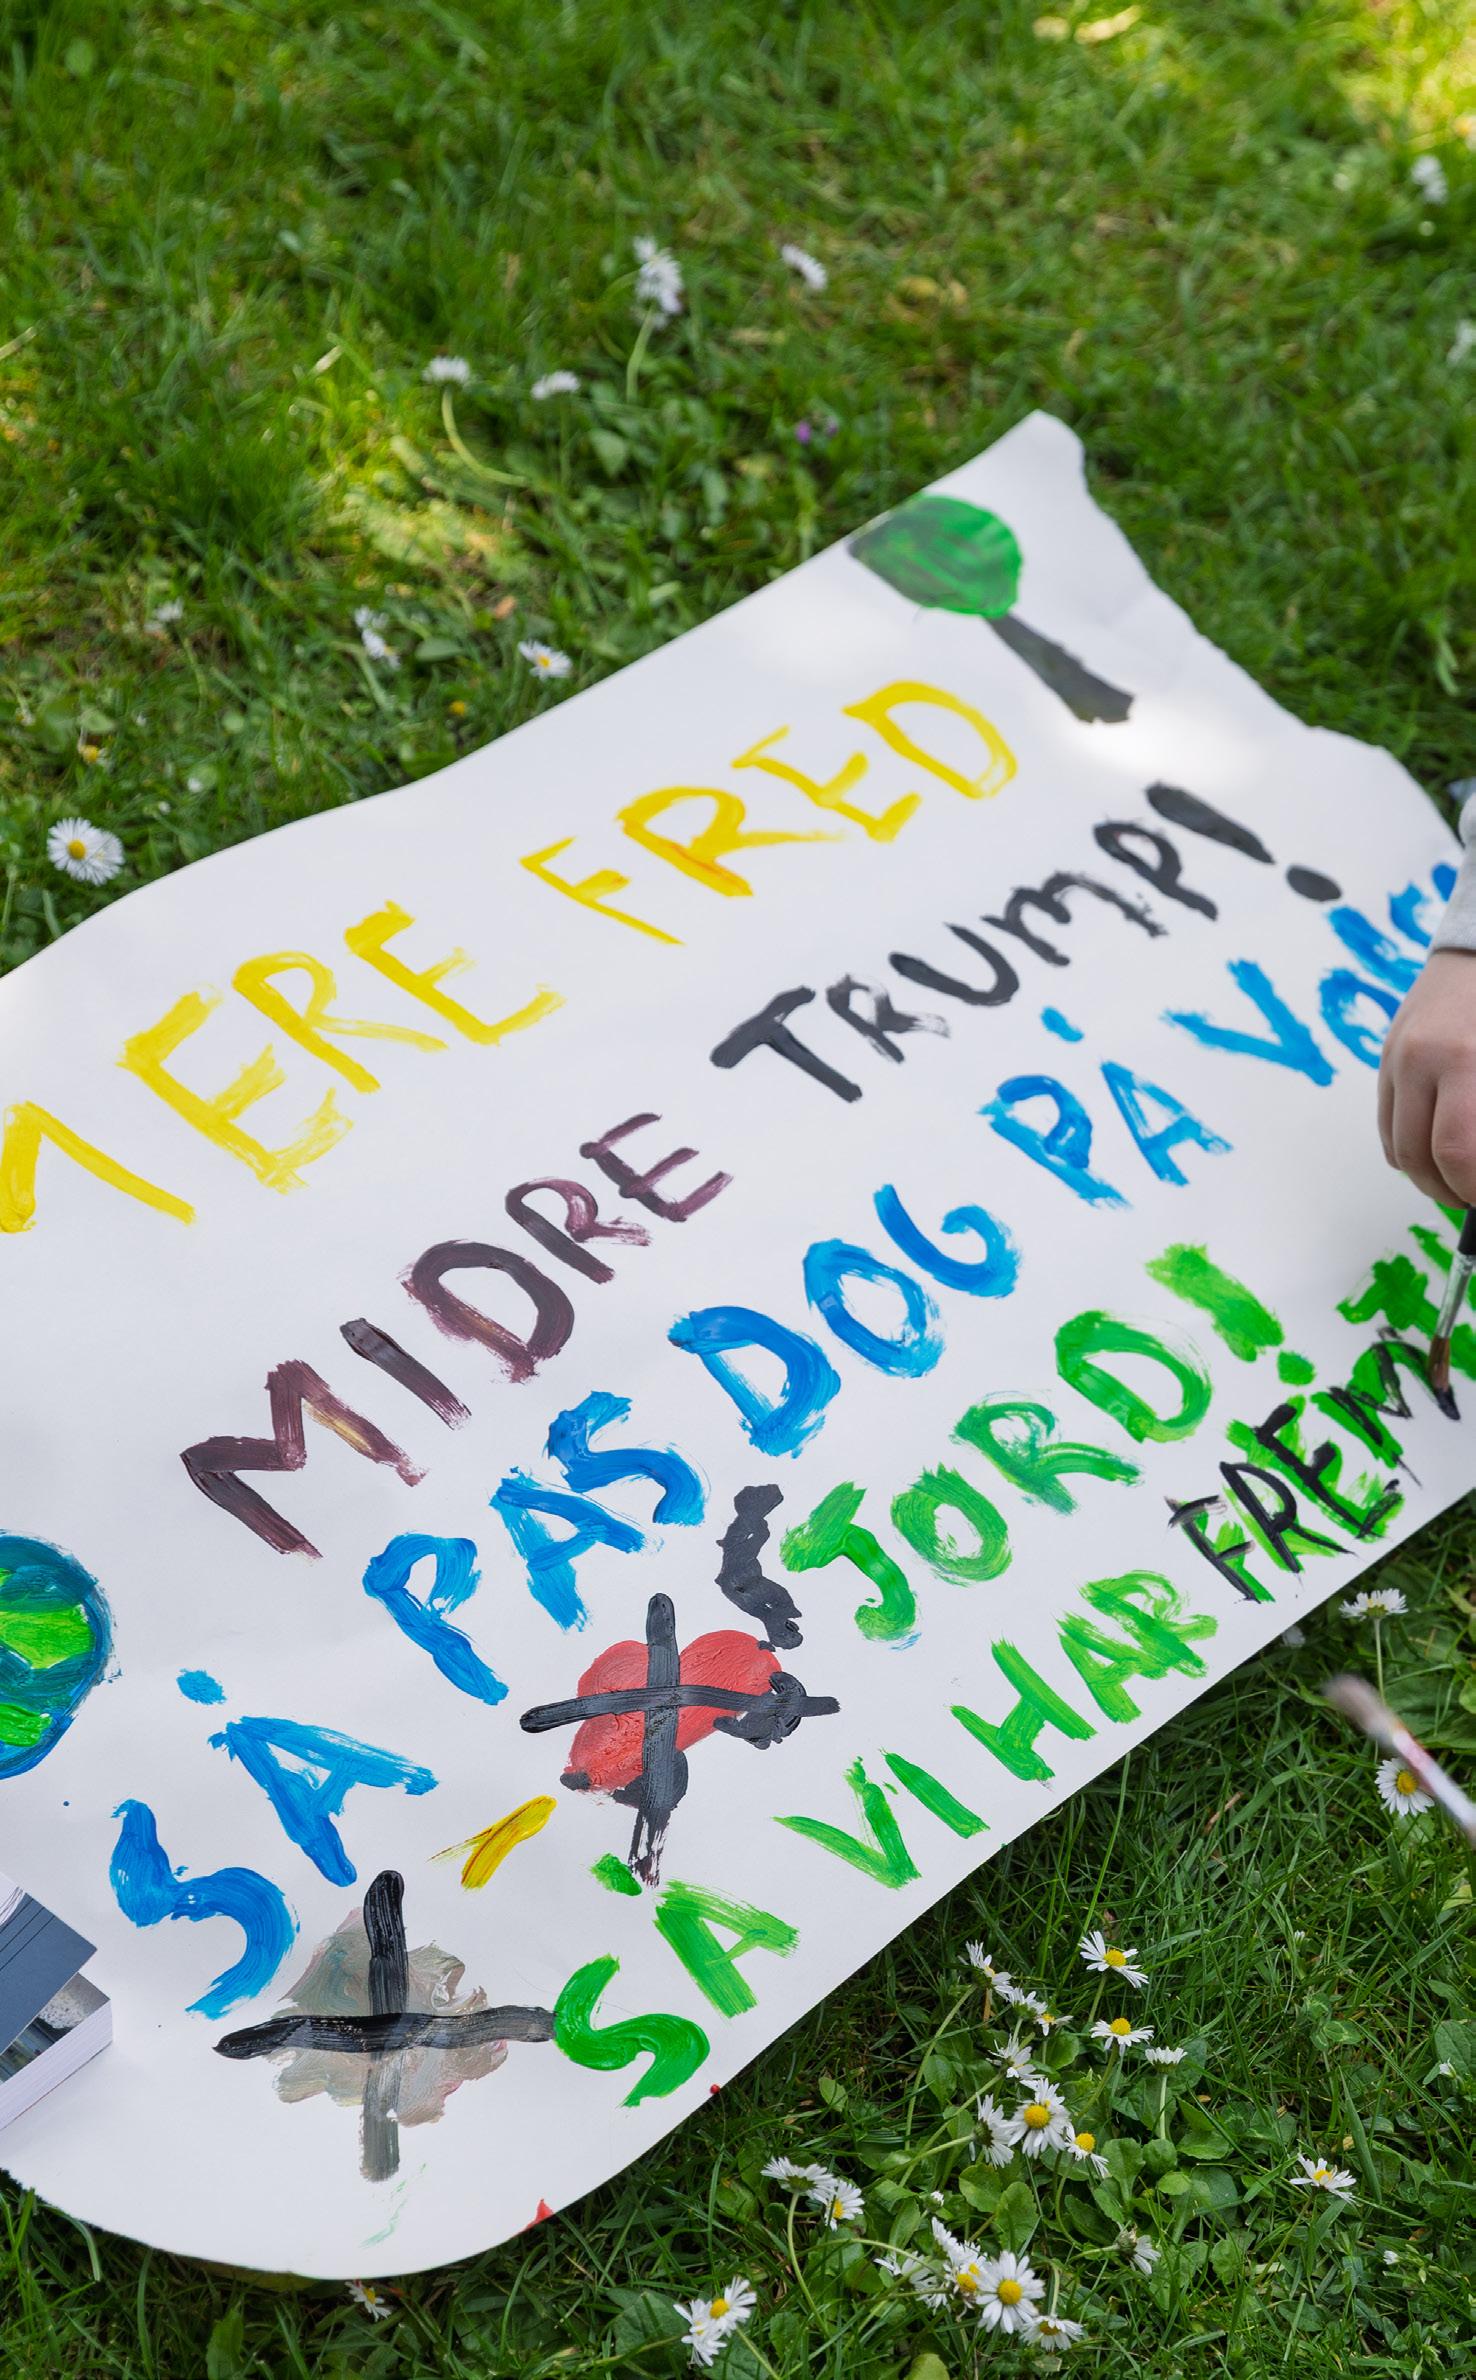 MERE FRED
MIDRE TRUMP!
SÅ PAS DOG PÅ VORES
JORD!
SÅ VI HAR